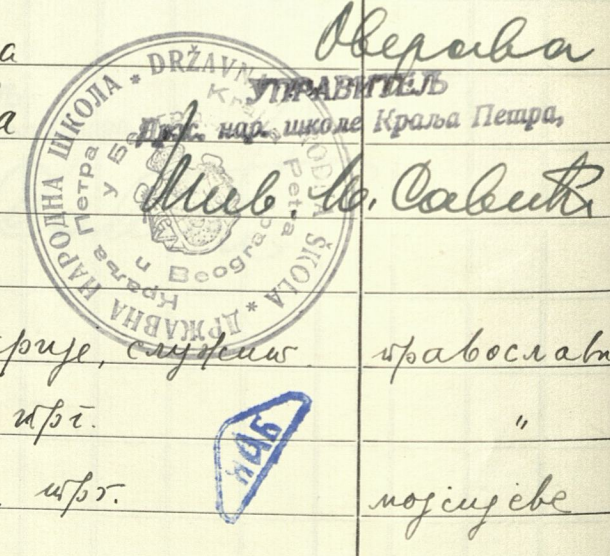 а Оверава
УПРАВИТЕЉ
а Држ. нар. школе Краља Петра,
Жив. М. Савић
ДРЖАВНА НАРОДНА ШКОЛА * DRŽAVNA NARODNA ŠKOLA *
Краља Петра у Београду
Kralja Petra u Beogradu
рије, служит. православн
трг. "
трг. мојсијеве